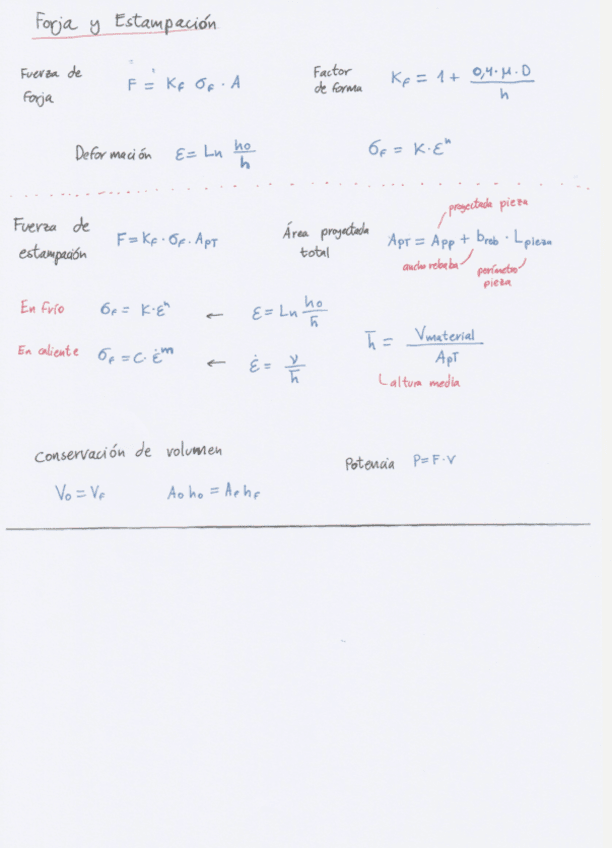 Forja y Estampación
Fuerza de forja F = K_F σ_F · A
Factor de forma K_F = 1 + (0,4 · μ · D) / h
Deformación ε = Ln (h_0 / h)
σ_F = K · ε^n
Fuerza de estampación F = K_F · σ_F · A_PT
Área proyectada total A_PT = A_PP + b_reb · L_pieza
proyectada pieza
ancho rebaba
perímetro pieza
En frío σ_F = K · ε^n ← ε = Ln (h_0 / h̄)
En caliente σ_F = C · ε̇^m ← ε̇ = v / h̄
h̄ = V_material / A_PT
altura media
Conservación de volumen
V_0 = V_F A_0 h_0 = A_F h_F
Potencia P = F · v